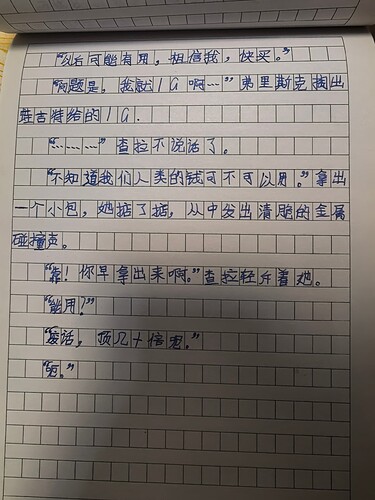 “以后可能有用，相信我，快买。”
“问题是，我就1G啊……”弗里斯克掏出
维吉特给的1G.
“………”查拉不说话了。
“不知道我们人类的钱可不可以用。”拿出
一个小包，她掂了掂，从中发出清脆的金属
碰撞声。
“靠！你早拿出来啊。”查拉轻斥着她。
“能用？”
“废话，顶几十倍呢。”